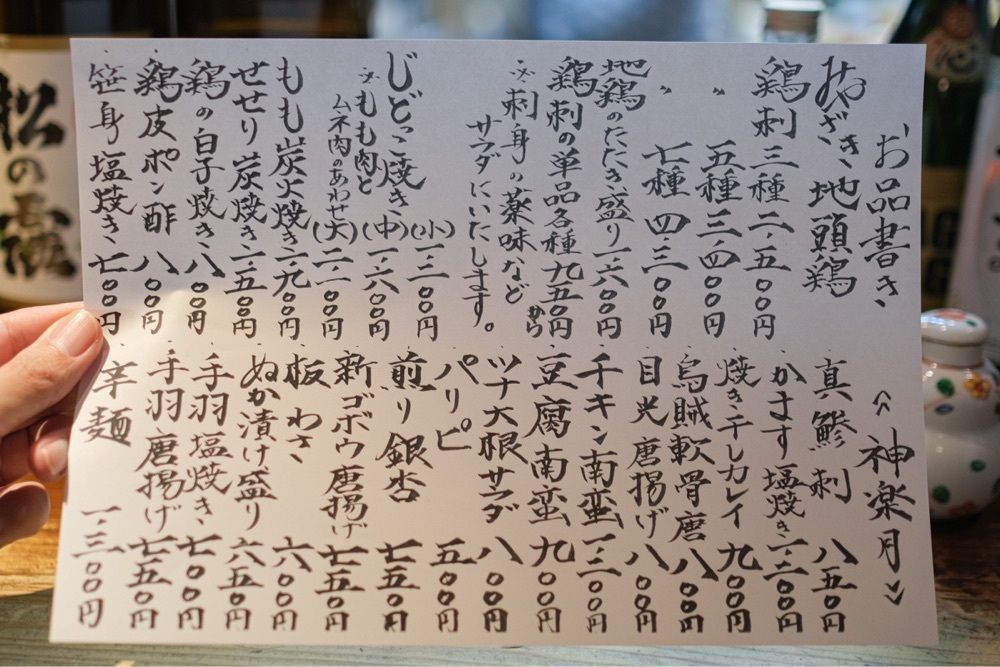 お品書き
みやざき地頭鶏
鶏刺 三種 二・五〇〇円
〃 五種 三・四〇〇円
〃 七種 四・三〇〇円
地鶏のたたき盛り 一・六〇〇円
鶏刺の単品各種 九五〇円から
※刺身の薬味など
サラダにいたします。
じどっこ焼き (小) 一・二〇〇円
※もも肉と (中) 一・六〇〇円
ムネ肉のあわせ (大) 二・二〇〇円
もも炭火焼き 二・九〇〇円
せせり炭焼き 一・五〇〇円
鶏の白子焼き 八〇〇円
鶏皮ポン酢 八〇〇円
笹身塩焼き 七〇〇円
《神楽月》
真鯵刺 八五〇円
かます塩焼き 一・二〇〇円
焼き干しカレイ 九〇〇円
烏賊軟骨唐 八〇〇円
目光唐揚げ 八〇〇円
チキン南蛮 一・二〇〇円
豆腐南蛮 九〇〇円
ツナ大根サラダ 八〇〇円
パリピ 五〇〇円
煎り銀杏 七五〇円
新ゴボウ唐揚げ 七五〇円
板わさ 六〇〇円
ぬか漬け盛り 六五〇円
手羽塩焼き 七〇〇円
手羽唐揚げ 七五〇円
辛麺 一・三〇〇円
松の露